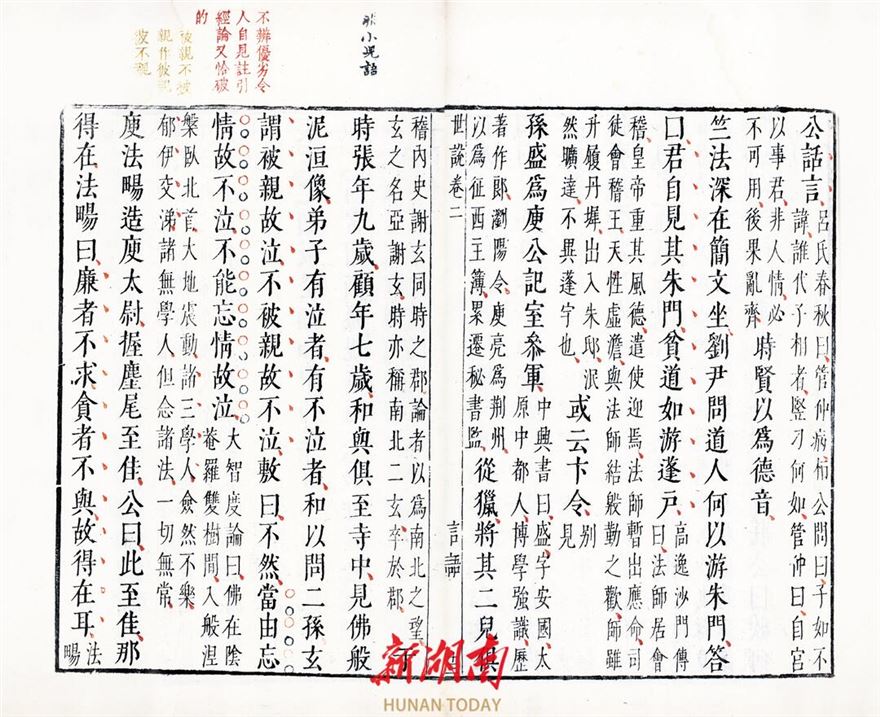 公話言
呂氏春秋曰管仲病桓公問曰子如不
諱誰代子相者豎刁何如管仲曰自宮
以事君非人情必
不可用後果亂齊
時賢以爲德音
竺法深在簡文坐劉尹問道人何以游朱門答
曰君自見其朱門貧道如游蓬戸
高逸沙門傳
曰法師居會
稽皇帝重其風德遣使迎焉法師暫出應命司
徒會稽王天性虛澹與法師結殷勤之歡師雖
升履丹墀出入朱邸泯
然曠達不異蓬宇也
或云卞令
别
見
孫盛爲庾公記室參軍
中興書曰盛字安國太
原中都人博學強識歷
著作郎瀏陽令庾亮爲荆州
以爲征西主簿累遷秘書監
從獵將其二兒俱
世說卷二
言語
小兒語
稽内史謝玄同時之郡論者以爲南北之望
玄之名亞謝玄時亦稱南北二玄卒於郡
時張年九歲顧年七歲和與俱至寺中見佛般
泥洹像弟子有泣者有不泣者和以問二孫玄
謂被親故泣不被親故不泣敷曰不然當由忘
情故不泣不能忘情故泣
大智度論曰佛在陰
菴羅雙樹間入般涅
槃臥北首大地震動諸三學人僉然不樂
郁伊交涕諸無學人但念諸法一切無常
庾法暢造庾太尉握麈尾至佳公曰此至佳那
得在法暢曰廉者不求貪者不與故得在耳
法
暢
不辨優劣令
人自見註引
經論又恰破
的
被親不被
新湖南
HUNAN TODAY